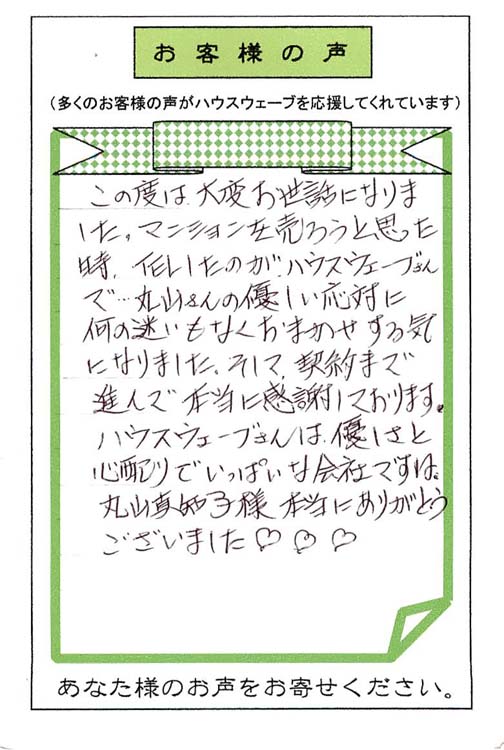 お客様の声
(多くのお客様の声がハウスウェーブを応援してくれています)
この度は、大変お世話になりま
した。マンションを売ろうと思った
時、伝したのがハウスウェーブさん
で…丸山さんの優しい応対に
何の迷いもなくおまかせする気
になりました。そして、契約まで
進んで本当に感謝しております。
ハウスウェーブさんは、優しさと
心配りでいっぱいな会社ですね。
丸山真知子様 本当にありがとう
ございました♡♡♡
あなた様のお声をお寄せください。